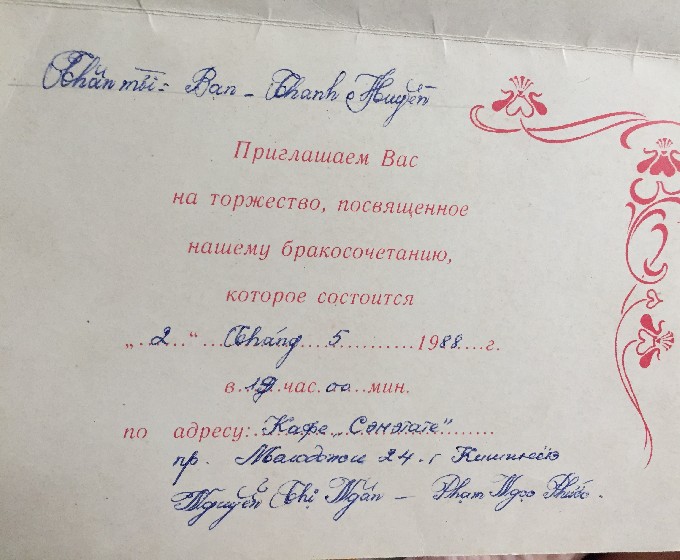 Thân mời: Bạn - Thanh Huyền
Приглашаем Вас
на торжество, посвященное
нашему бракосочетанию,
которое состоится
„..2..“...Tháng....5..........1988....г.
в..19.час.00..мин.
по адресу:..Кафе „
пр. 24. г
Nguyễn Thị Ngân - Phạm Ngọc